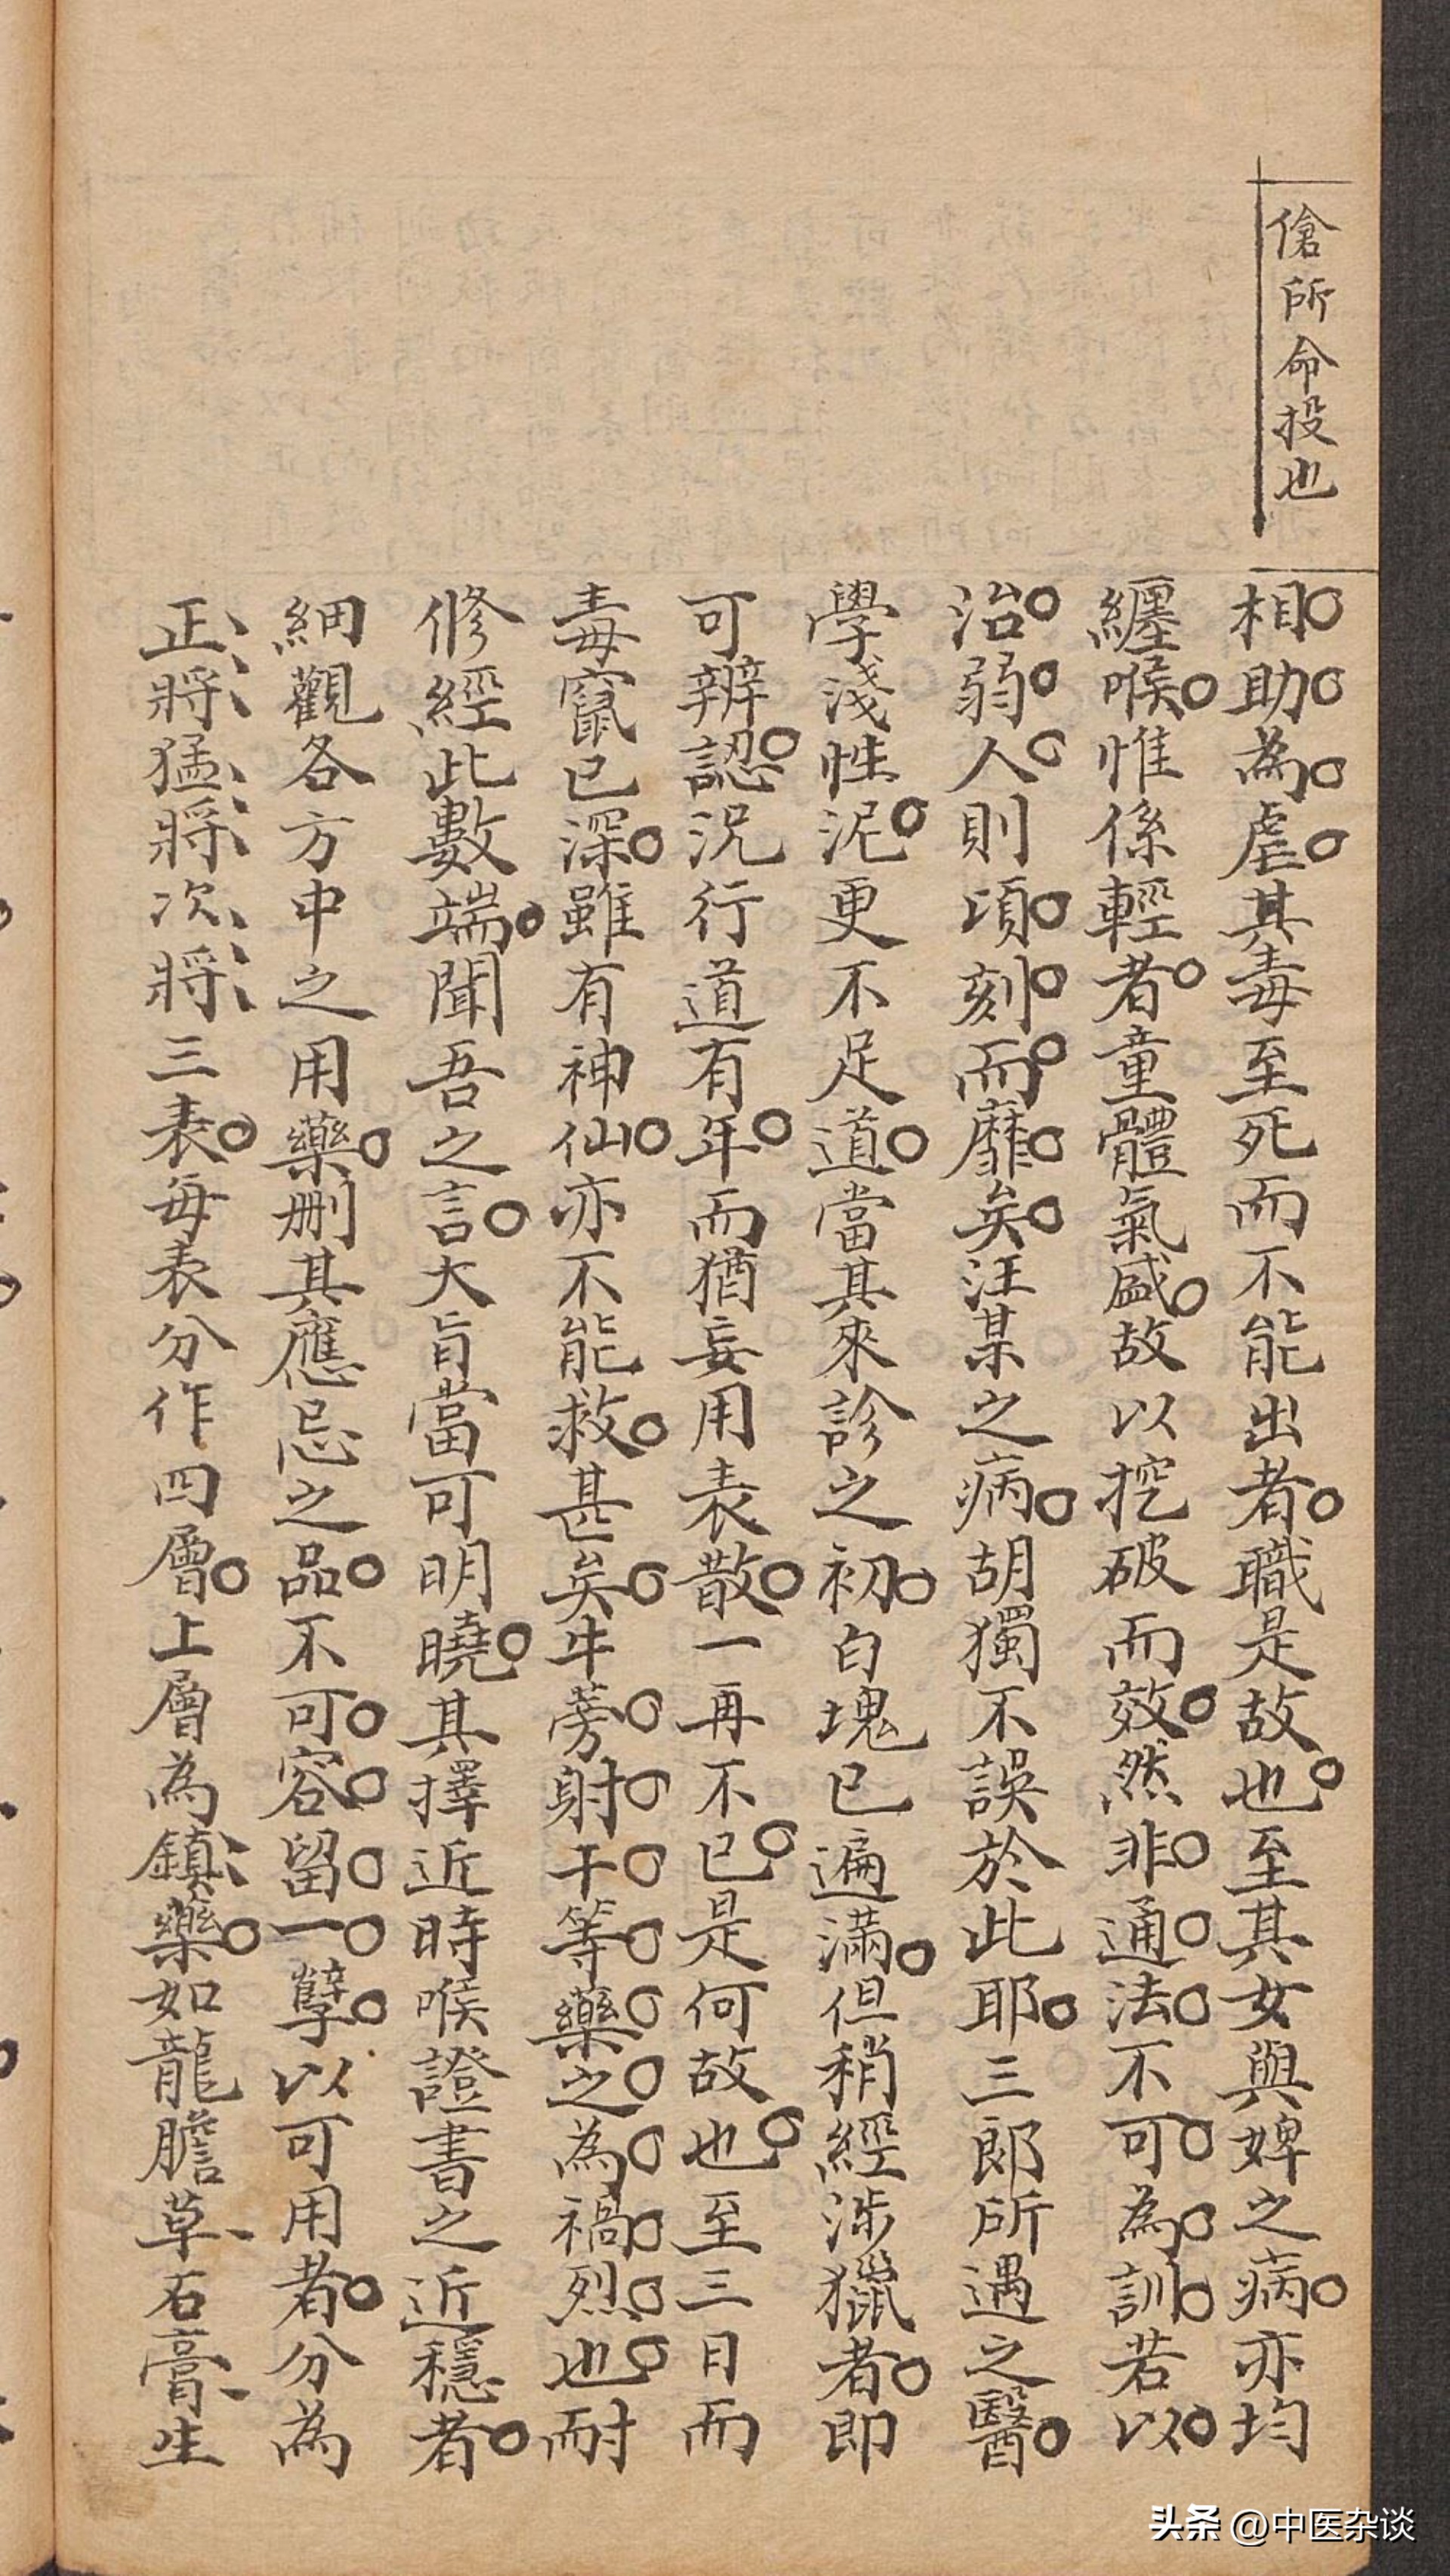 傖所命投也
相助為虐其毒至死而不能出者職是故也至其女與婢之病亦均
纏喉惟係輕者童體氣盛故以挖破而效然非通法不可為訓若以
治弱人則頃刻而靡矣汪某之病胡獨不誤於此耶三郎所遇之醫
學淺性泥更不足道當其來診之初白塊已遍滿但稍經涉獵者即
可辨認況行道有年而猶妄用表散一再不已是何故也至三日而
毒竄已深雖有神仙亦不能救甚矣牛蒡射干等藥之為禍烈也耐
修經此數端聞吾之言大旨當可明曉其擇近時喉證書之近穩者
細觀各方中之用藥刪其應忌之品不可容留一孽以可用者分為
正將猛將次將三表每表分作四層上層為鎮藥如龍膽草石膏生
头条 @中医杂谈